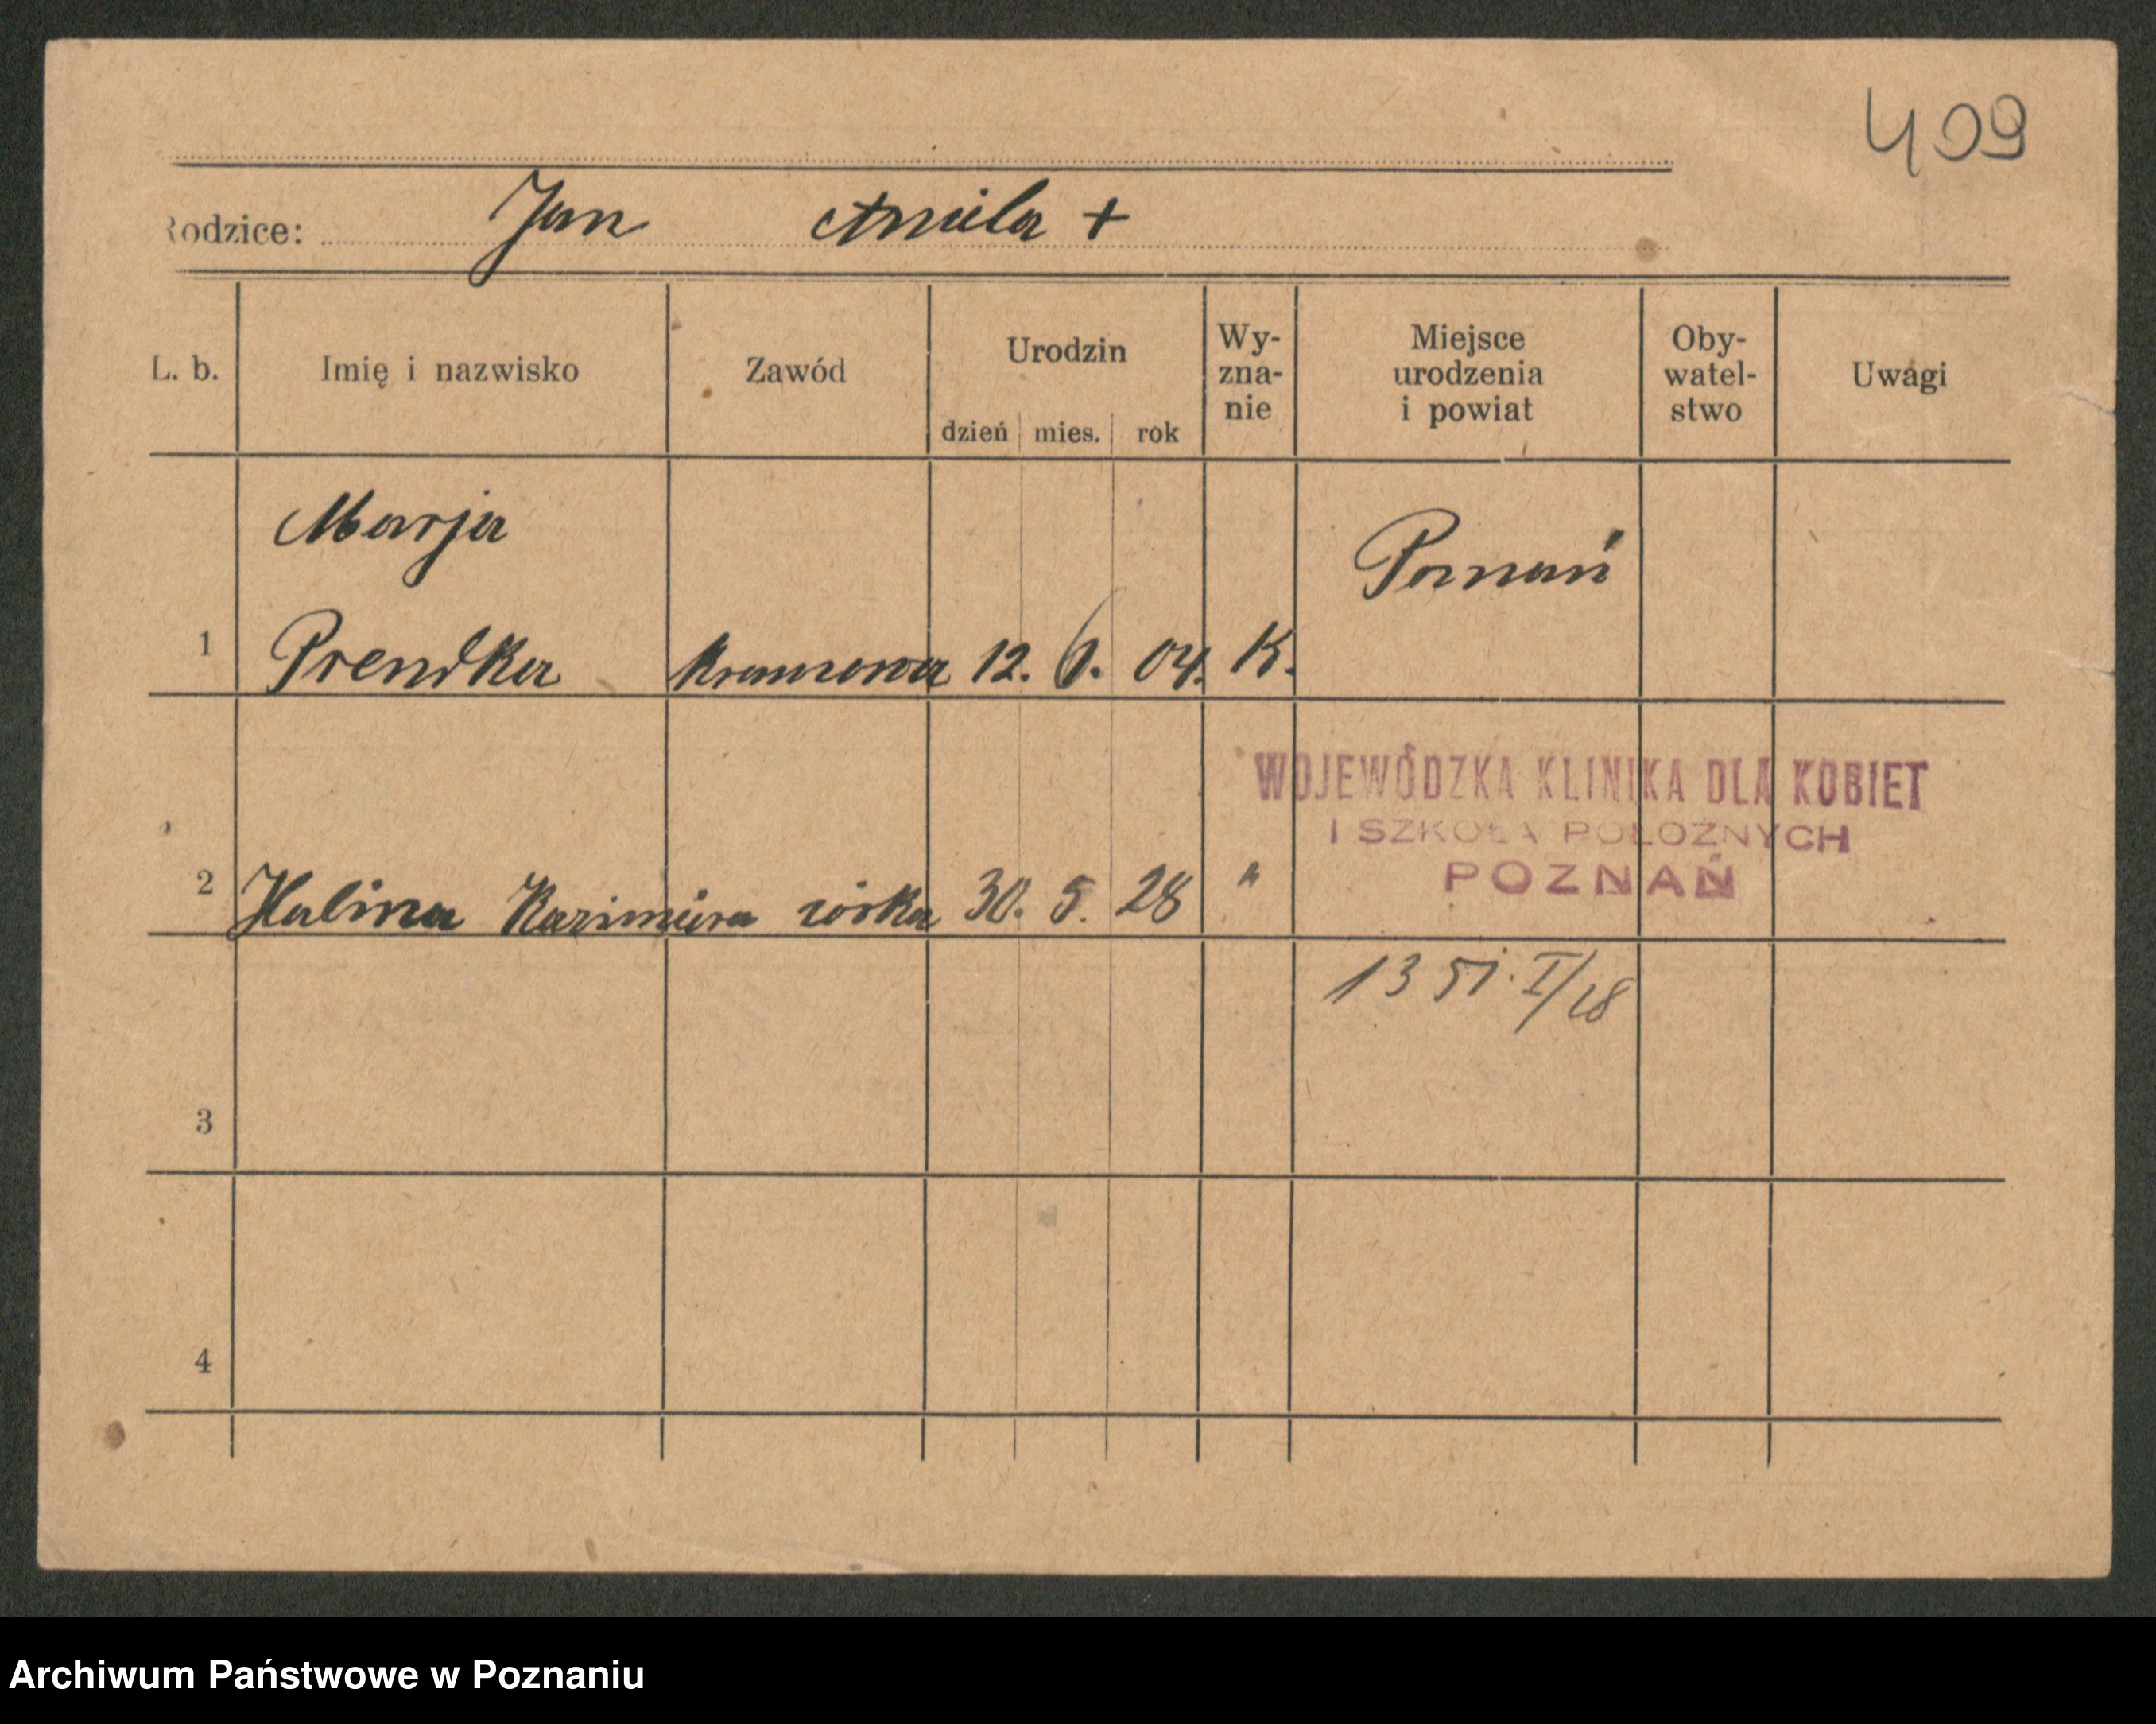 409
Rodzice: Jan Aniela +
L. b. Imię i nazwisko Zawód Urodzin dzień mies. rok Wy-zna-nie Miejsce urodzenia i powiat Oby-watel-stwo Uwagi
Marja Poznań
1 Prendka krawcowa 12. 6. 04. K.
WOJEWÓDZKA KLINIKA DLA KOBIET
I SZKOŁA POŁOŻNYCH
POZNAŃ
2 Halina Kazimiera córka 30. 5. 28 "
I/28
3
4
Archiwum Państwowe w Poznaniu